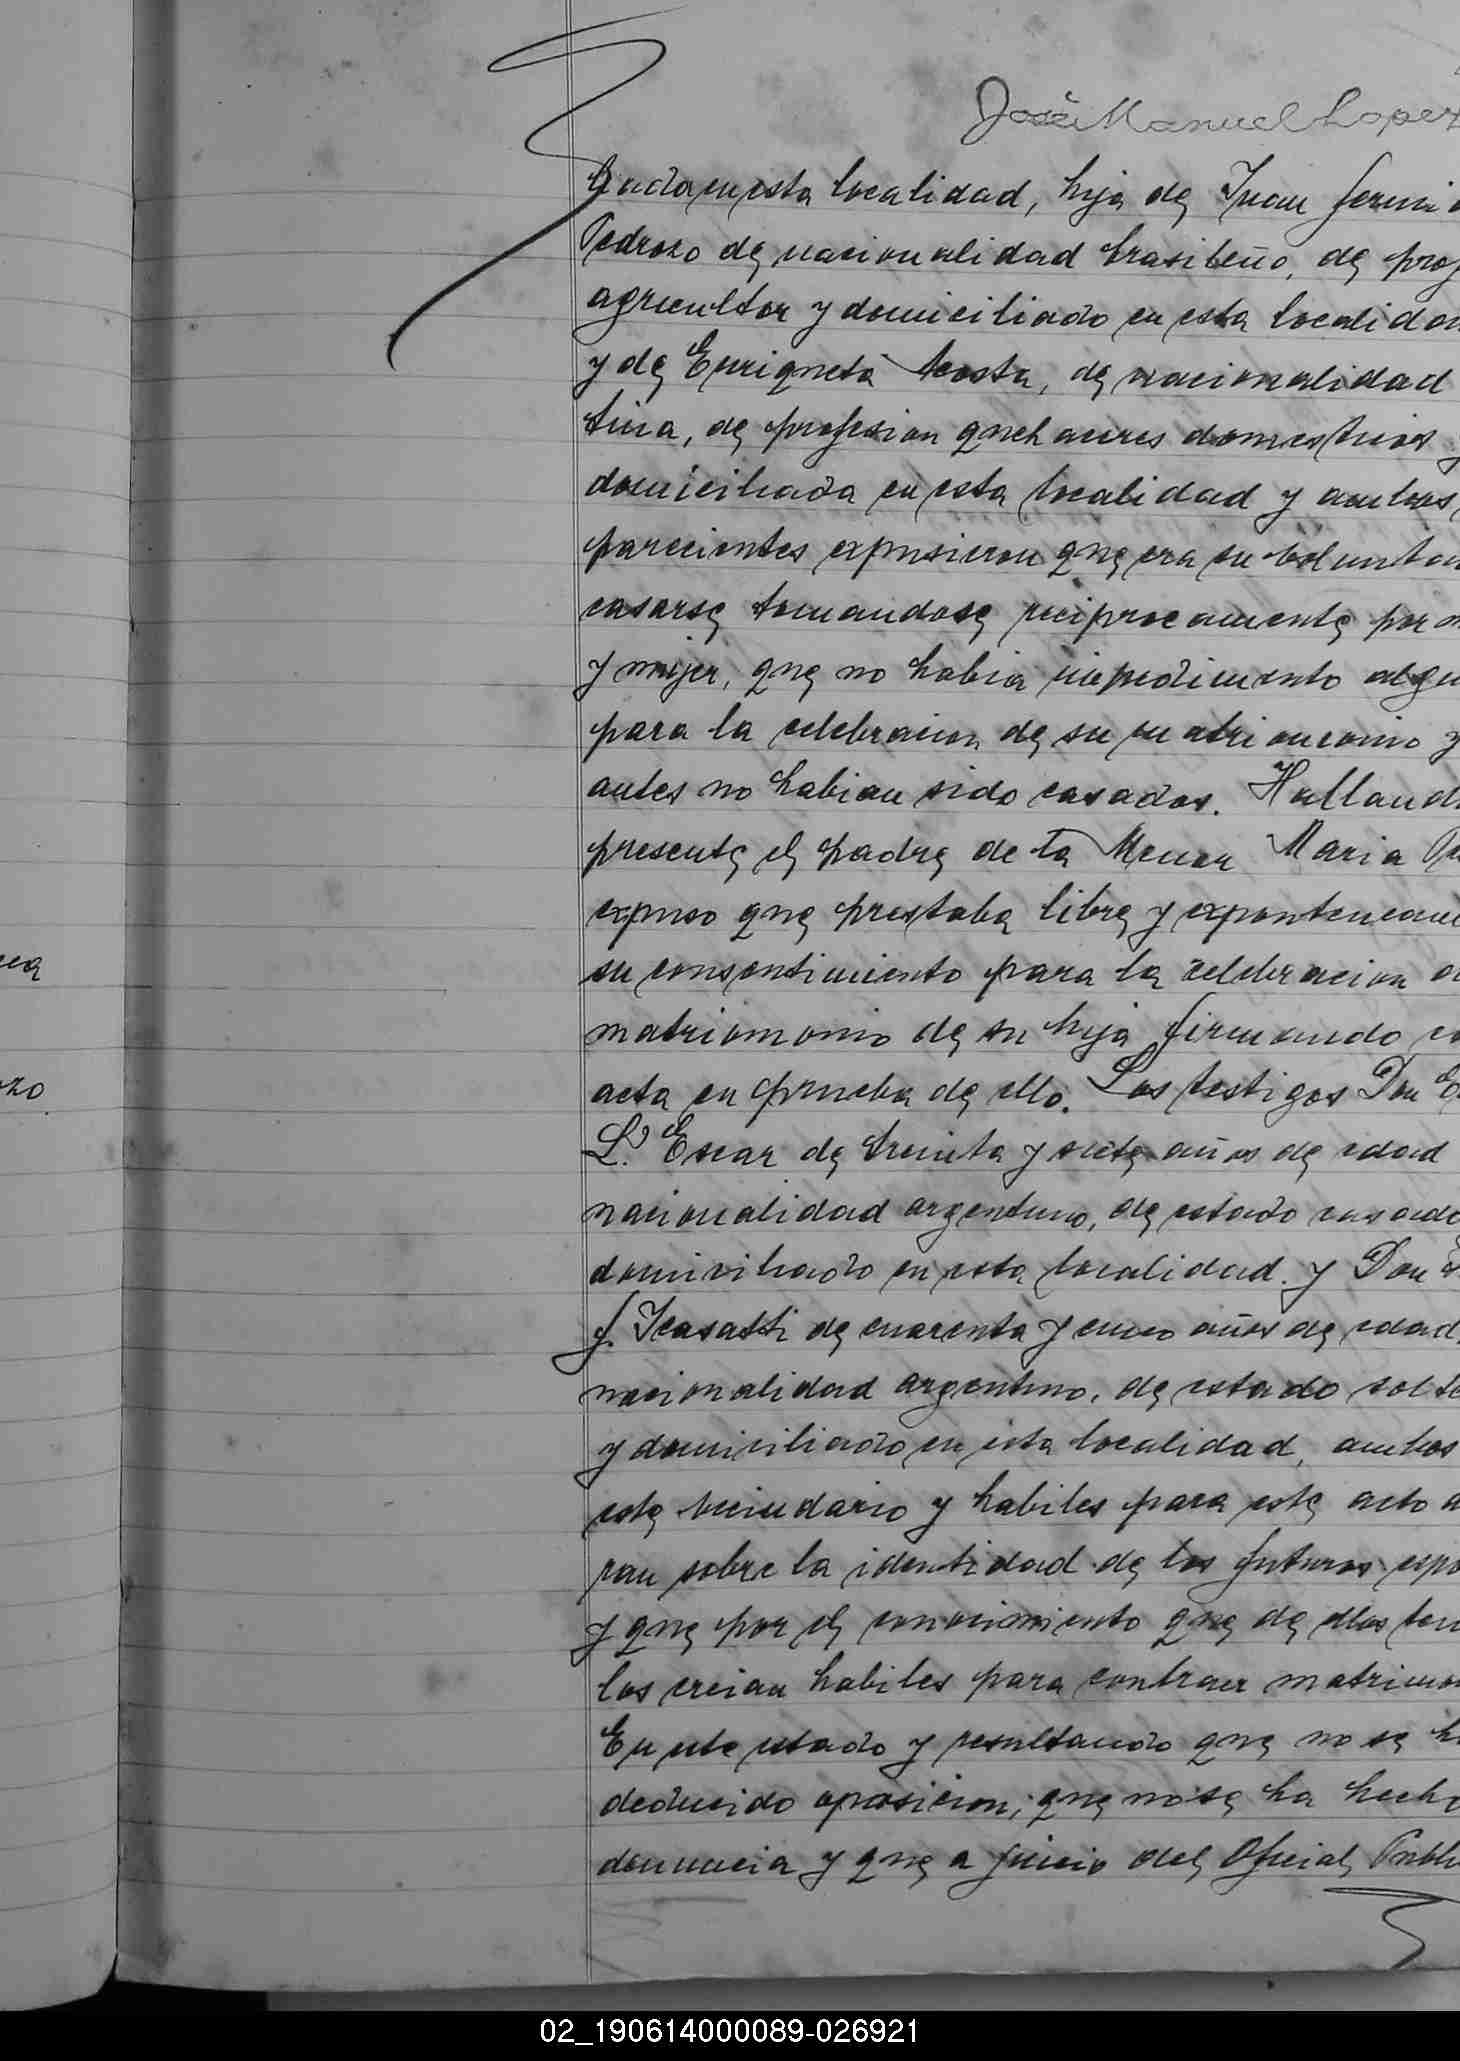 José Manuel Lopez
ciada en esta localidad, hija de Juan fermi
Pedrozo de nacionalidad brasileño, de prof
agricultor y domiciliado en esta localidad
y de Enriqueta Acosta, de nacionalidad
tina, de profesion quehaceres domesticos y
domiciliada en esta localidad y ambos
parecientes expusieron que era su voluntad
casarse tomandose reciprocamente por m
y mujer, que no habia impedimento algu
para la celebracion de su matrimonio y
antes no habian sido casados. Halland
presente el padre de la Menor Maria Pe
expuso que prestaba libre y expontaneam
su consentimiento para la celebracion d
matriomonio de su hija firmando es
acta en prueba de ello. Los testigos Don E
L. Escar de treinta y siete años de edad
nacionalidad argentino, de estado casado
domiciliado en esta localidad. y Don
f. Icasatti de cuarenta y cinco años de edad,
nacionalidad argentino, de estado solte
y domiciliado en esta localidad, ambos
este vecindario y habiles para este acto a
ran sobre la identidad de los futuros espo
y que por el conocimiento que de ellos ten
los creian habiles para contraer matrimon
En este estado y resultando que no se h
deducido oposicion; que no se ha hech
denuncia y que a juicio del Oficial Publi
ozo
02_190614000089-026921